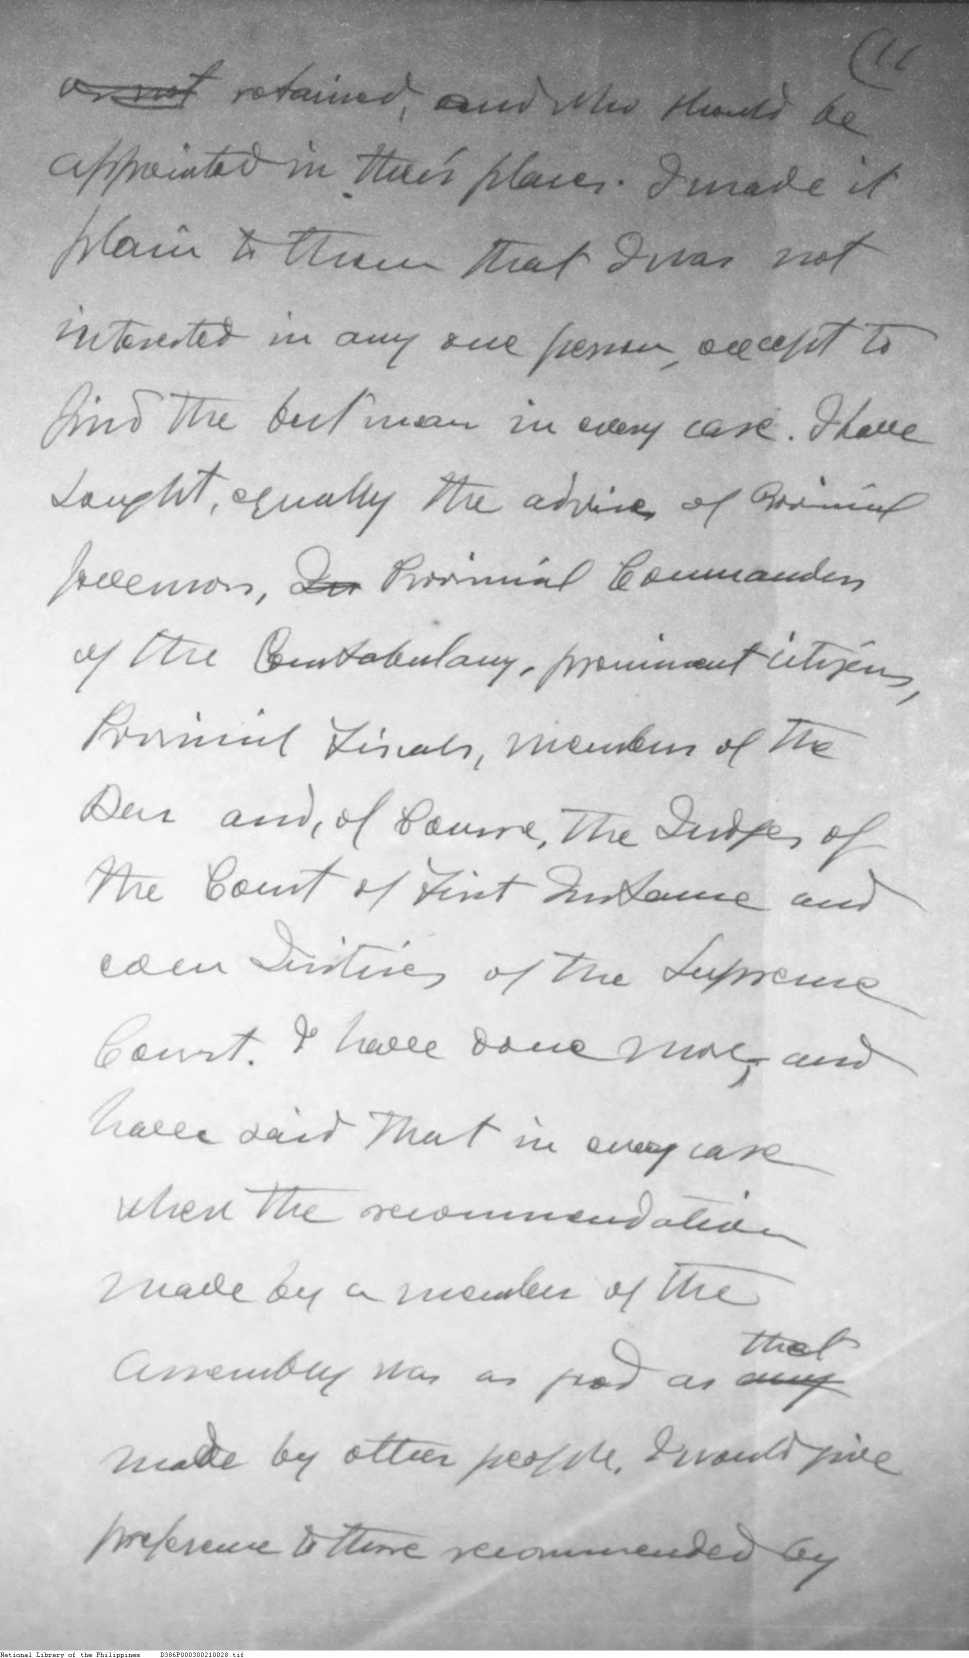 (11
or not retained, and who should be
appointed in their places. I made it
plain to them that I was not
interested in any one person, except to
find the best man in every case. I have
sought, equally the advice of Provincial
governors, Provincial Commanders
of the Constabulary, prominent citizens,
Provincial Fiscals, members of the
Bar and, of course, the Judges of
the Court of First Instance and
even Justices of the Supreme
Court. I have done more, and
have said that in every case
when the recommendation
made by a member of the
Assembly was as good as any that
made by other people, I would give
preference to those recommended by
National Library of the Philippines D386P000300210028.tif